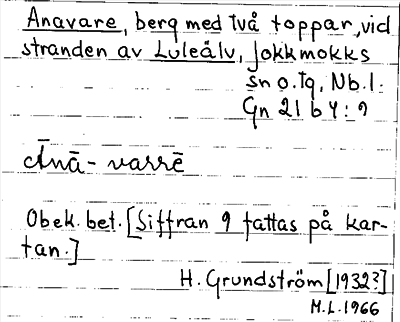 Anavare, berg med två toppar, vid
stranden av Luleälv, Jokkmokks
sn o. tg, Nb. l.
Gn 21 b 4:9
Ānā-varrē
Obek. bet. [Siffran 9 fattas på kar-
tan.]
H. Grundström [1932?]
M.L. 1966